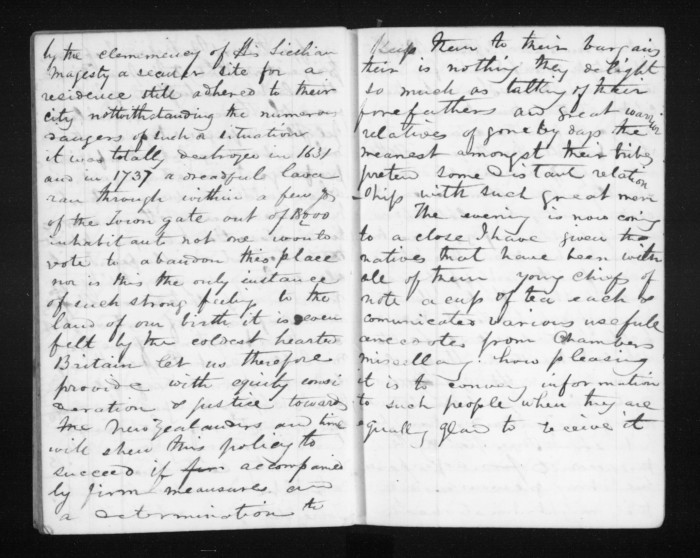 by the clememency of His Sicilian
Majesty a securer site for a
residence still adhered to their
city notwithstanding the numerous
dangers of such a situation
it was totally destroyed in 1631
and in 1737 a dreadful lava
ran through within a few
of the Town gate out of 18000
inhabitants not one would
vote to abandon the place
nor is this the only instance
of such strong feeling to the
land of our birth it is even
felt by the coldest hearted
Britain let us therefore
provide with equity consi
deration & justice towards
the NewZealanders and time
will shew this policy to
succeed if accompanied
by firm measures and
a determination to
keep them to their bargains
their is nothing they delight
so much as talking of their
forefathers and great warrior
relatives of gone by days the
meanest amongst their tribes
preten some distant relation
ship with such great men
The evening is now coming
to a close I have given the
natives that have been with
me of them young chiefs of
note a cup of tea each &
comunicated various usefull
anecdotes from Chambers
miscellany how pleasing
it is to convey information
to such people when they are
equally glad to receive it